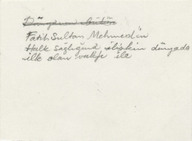 Fatih Sultan Mehmed'in
Halk sağlığına ilişkin dünyada
ilk olan vakfiye ile